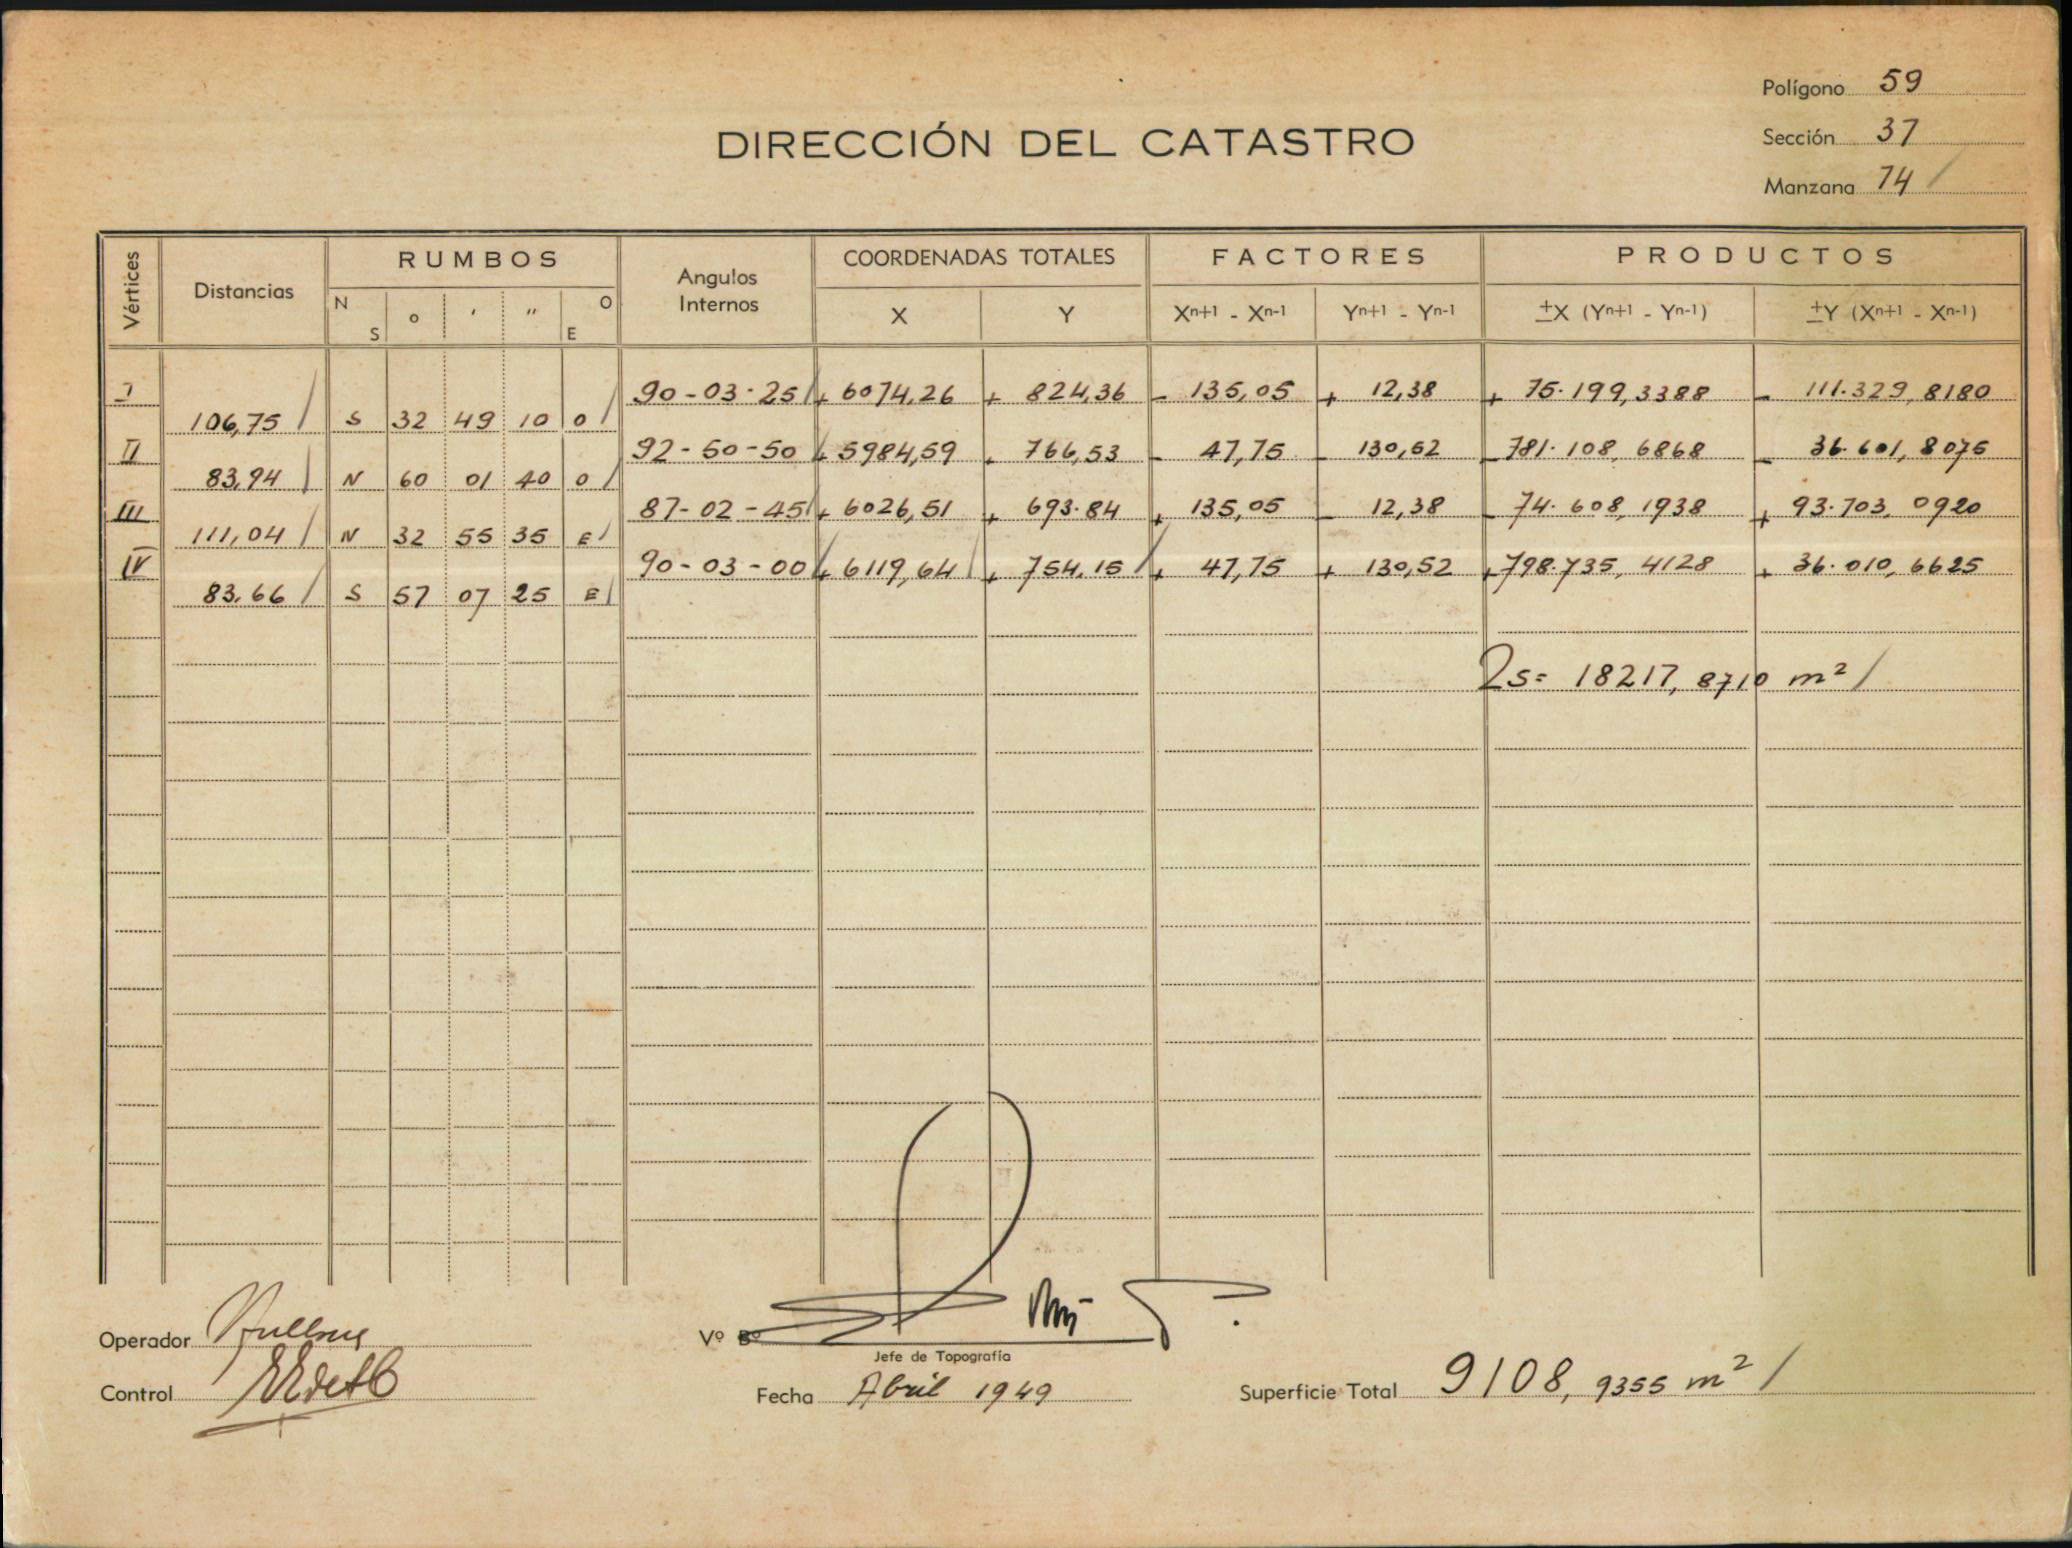 Polígono 59
DIRECCIÓN DEL CATASTRO
Sección 37
Manzana 74 /
Vértices Distancias RUMBOS Angulos Internos COORDENADAS TOTALES FACTORES PRODUCTOS
N S ° ' " O E X Y Xn+1 - Xn-1 Yn+1 - Yn-1 ±X (Yn+1 - Yn-1) ±Y (Xn+1 - Xn-1)
I 90-03-25 / + 6074,26 + 824,36 - 135,05 + 12,38 + 75.199,3388 - 111.329,8180
106,75 / S 32 49 10 O /
II 92-50-50 + 5984,59 + 766,53 - 47,75 - 130,52 - 781.108,6868 - 36.601,8075
83,94 / N 60 01 40 O /
III 87-02-45 / + 6026,51 + 693.84 + 135,05 - 12,38 - 74.608,1938 + 93.703,0920
111,04 / N 32 55 35 E /
IV 90-03-00 + 6119,64 / + 754,15 / + 47,75 + 130,52 + 798.735,4128 + 36.010,6625
83.66 / S 57 07 25 E /
2s= 18217,8710 m² /
Operador
Vº Bº
Jefe de Topografía
Control
Fecha Abril 1949
Superficie Total 9108,9355 m² /